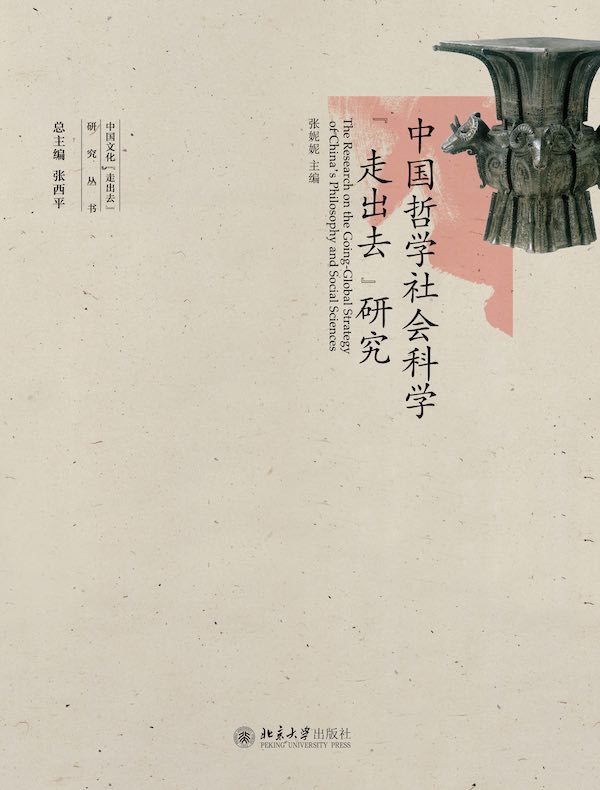 中国哲学社会科学
『走出去』研究
The Research on the Going-Global Strategy
of China's Philosophy and Social Sciences
张妮妮 主编
中国文化『走出去』
研究丛书
总主编 张西平
北京大学出版社
PEKING UNIVERSITY PRESS